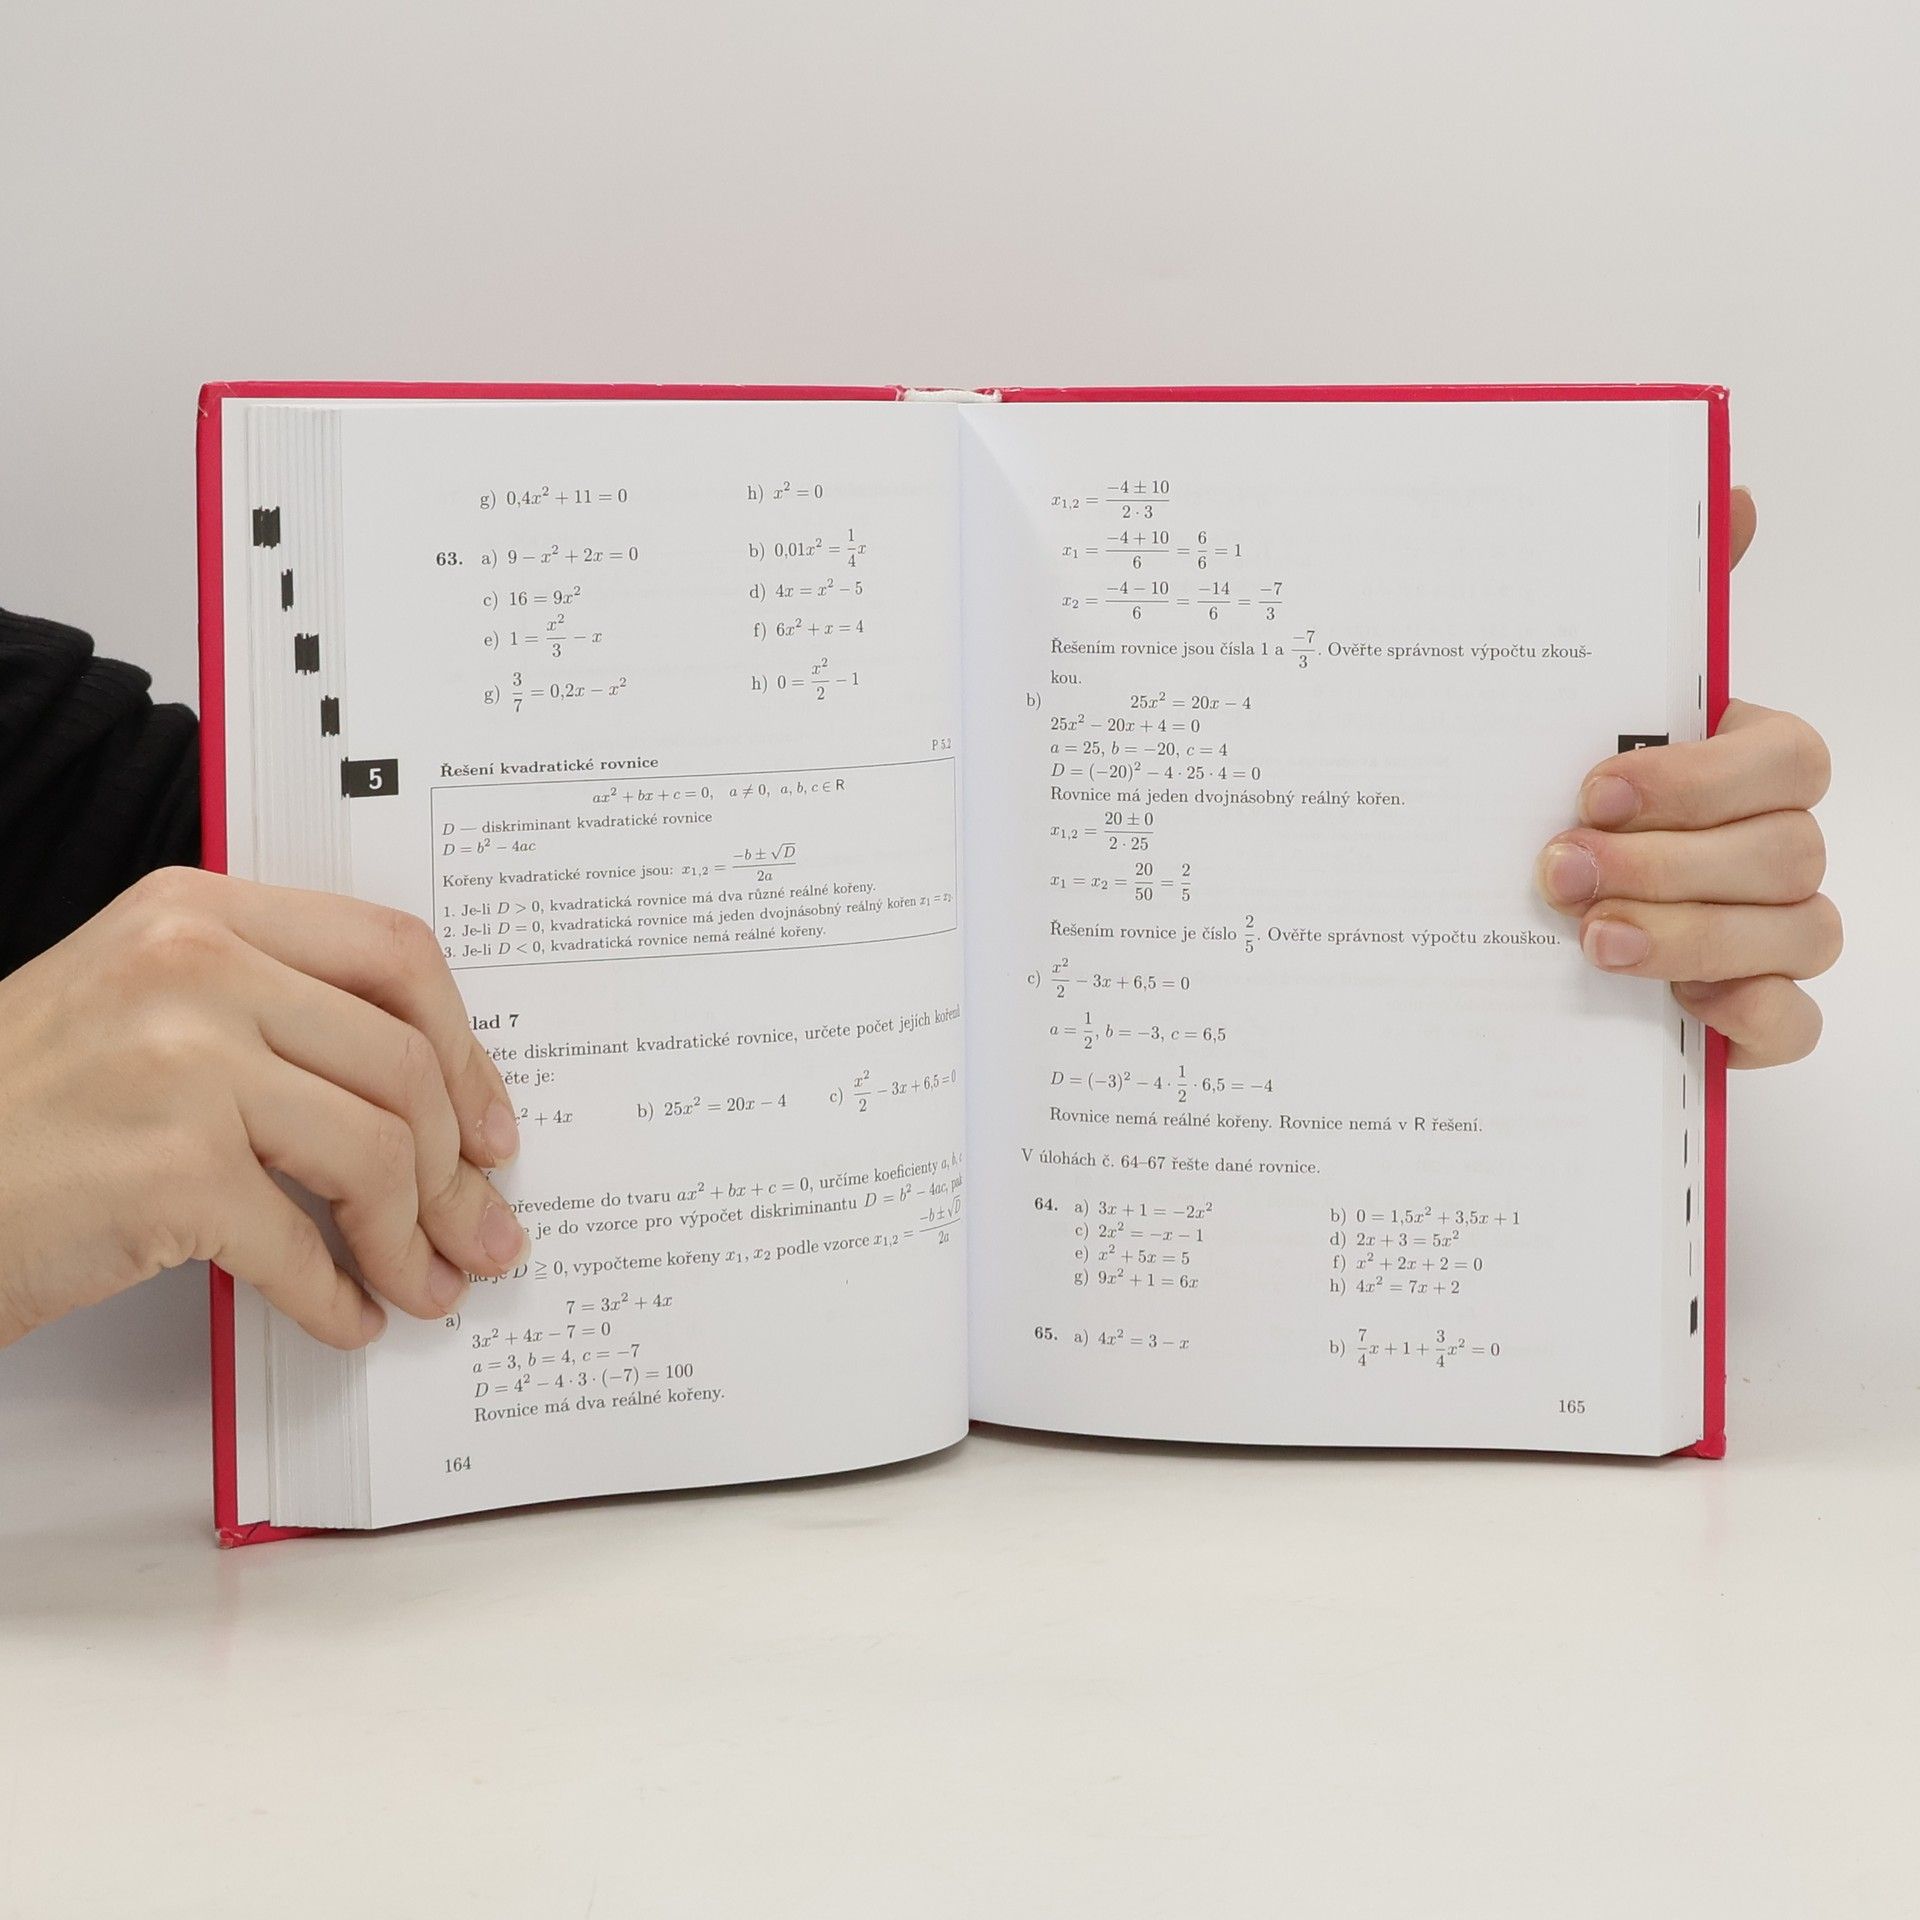 g) 0,4x² + 11 = 0 h) x² = 0
63. a) 9 − x² + 2x = 0 b) 0,01x² = 1/4 x
c) 16 = 9x² d) 4x = x² − 5
e) 1 = x²/3 − x f) 6x² + x = 4
g) 3/7 = 0,2x − x² h) 0 = x²/2 − 1
P 5.2
5 Řešení kvadratické rovnice
ax² + bx + c = 0, a ≠ 0, a, b, c ∈ R
D — diskriminant kvadratické rovnice
D = b² − 4ac
Kořeny kvadratické rovnice jsou: x₁,₂ = (−b ± √D)/2a
1. Je-li D > 0, kvadratická rovnice má dva různé reálné kořeny.
2. Je-li D = 0, kvadratická rovnice má jeden dvojnásobný reálný kořen x₁ = x₂.
3. Je-li D < 0, kvadratická rovnice nemá reálné kořeny.
lad 7
těte diskriminant kvadratické rovnice, určete počet jejích kořenů
ěte je:
² + 4x b) 25x² = 20x − 4 c) x²/2 − 3x + 6,5 = 0
převedeme do tvaru ax² + bx + c = 0, určíme koeficienty a, b, c
je do vzorce pro výpočet diskriminantu D = b² − 4ac, pak
je D ≧ 0, vypočteme kořeny x₁, x₂ podle vzorce x₁,₂ = (−b ± √D)/2a
a) 7 = 3x² + 4x
3x² + 4x − 7 = 0
a = 3, b = 4, c = −7
D = 4² − 4 · 3 · (−7) = 100
Rovnice má dva reálné kořeny.
164
x₁,₂ = (−4 ± 10)/(2 · 3)
x₁ = (−4 + 10)/6 = 6/6 = 1
x₂ = (−4 − 10)/6 = −14/6 = −7/3
Řešením rovnice jsou čísla 1 a −7/3. Ověřte správnost výpočtu zkouš-
kou.
b) 25x² = 20x − 4
25x² − 20x + 4 = 0
a = 25, b = −20, c = 4
D = (−20)² − 4 · 25 · 4 = 0
Rovnice má jeden dvojnásobný reálný kořen.
x₁,₂ = (20 ± 0)/(2 · 25)
x₁ = x₂ = 20/50 = 2/5
Řešením rovnice je číslo 2/5. Ověřte správnost výpočtu zkouškou.
c) x²/2 − 3x + 6,5 = 0
a = 1/2, b = −3, c = 6,5
D = (−3)² − 4 · 1/2 · 6,5 = −4
Rovnice nemá reálné kořeny. Rovnice nemá v R řešení.
V úlohách č. 64–67 řešte dané rovnice.
64. a) 3x + 1 = −2x² b) 0 = 1,5x² + 3,5x + 1
c) 2x² = −x − 1 d) 2x + 3 = 5x²
e) x² + 5x = 5 f) x² + 2x + 2 = 0
g) 9x² + 1 = 6x h) 4x² = 7x + 2
65. a) 4x² = 3 − x b) 7/4 x + 1 + 3/4 x² = 0
165